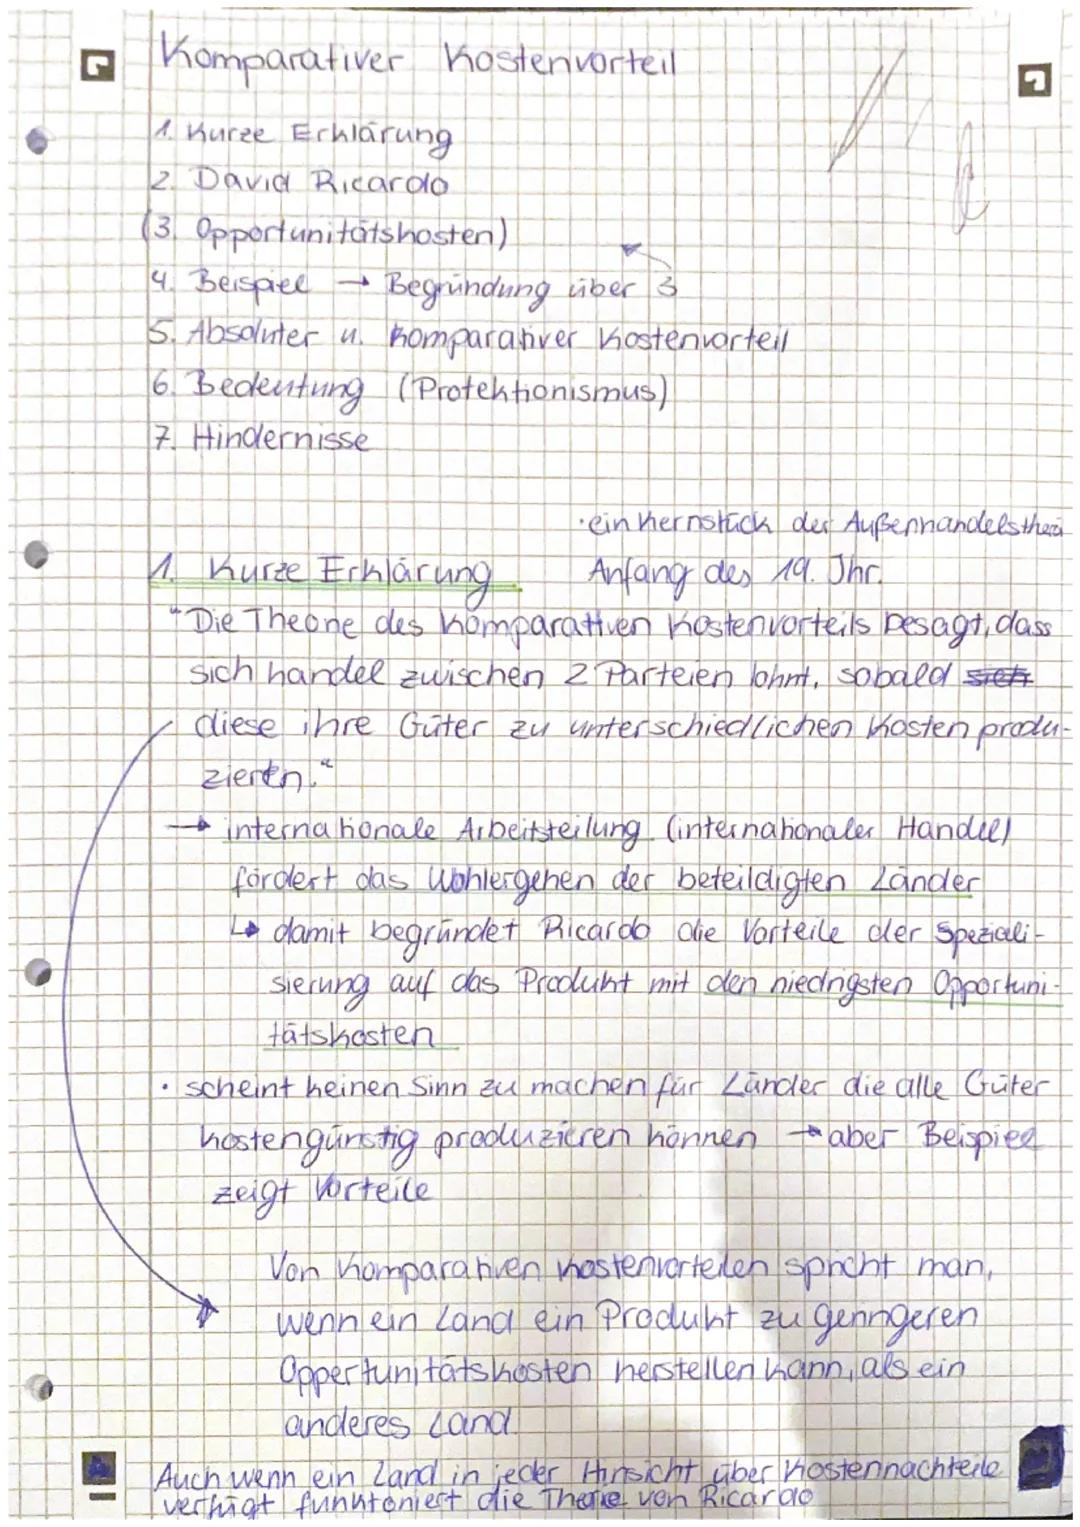 Komparativer Kostenvorteil
1. Kurze Erklärung
2. David Ricardo
(3. Opportunitätskosten)
4. Beispiel → Begründung über 3
5. Absoluter u. Komparativer Kostenvorteil
6. Bedeutung (Protektionismus)
7. Hindernisse
· ein Kernstück der Außenhandelstheo
1. Kurze Erklärung Anfang des 19. Jhr.
"Die Theorie des Komparativen Kostenvorteils besagt, dass
sich handel zwischen 2 Parteien lohnt, sobald
diese ihre Güter zu unterschiedlichen Kosten produ-
zieren."
→ internationale Arbeitsteilung (internationaler Handel)
fördert das Wohlergehen der beteildigten Länder
↳ damit begründet Ricardo die Vorteile der Speziali-
sierung auf das Produkt mit den niedrigsten Opportuni-
tätskosten
· scheint keinen Sinn zu machen für Länder die alle Güter
kostengünstig produzieren können → aber Beispiel
zeigt Vorteile
Von Komparativen Kostenvorteilen spricht man,
wenn ein Land ein Produkt zu geringeren
Oppertunitätskosten herstellen kann, als ein
anderes Land.
Auch wenn ein Land in jeder Hinsicht über Kostennachteile
verfügt funktoniert die von Ricardo